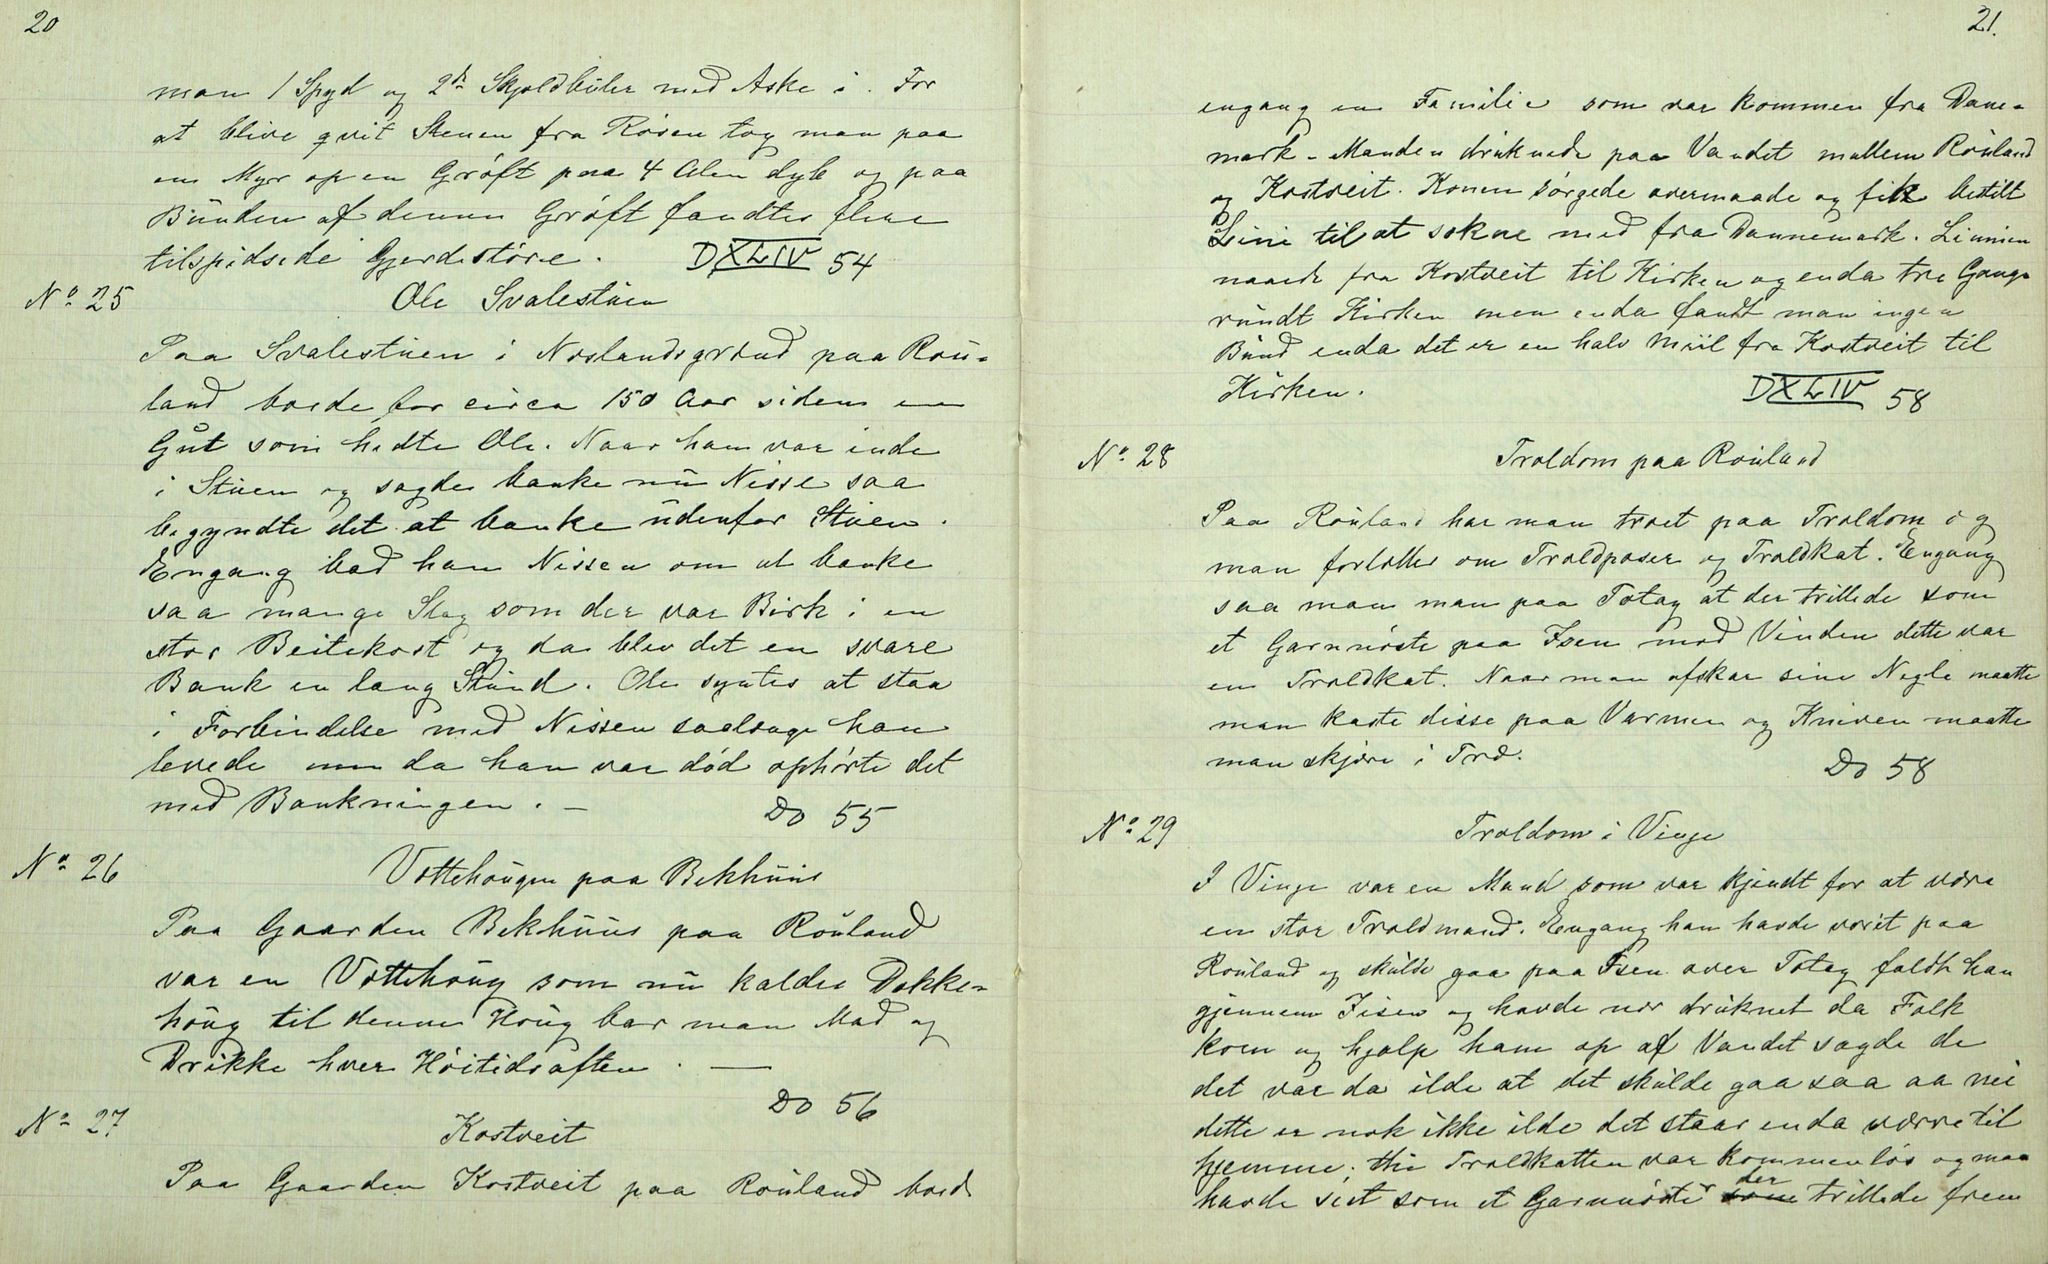 20
man 1 Spyd og 2de Skjoldbuler med Aske i. For
at blive qvit Stenen fra Røsen tog man paa
en Myr op en Grøft paa 4 Alen dyb og paa
Bunden af denne Grøft fandtes flere
tilspidsede Gjerdestøre.
DXLIV 54
No 25
Ole Svalestuen
Paa Svalestuen i Neslandsgrænd paa Rau-
land boede for circa 150 Aar siden en
Gut som hedte Ole. Naar han var inde
i Stuen og sagde banke nu Nisse saa
begyndte det at banke udenfor Stuen.
Engang bad han Nissen om at banke
saa mange Slag som der var Birk i en
stor Beitekost og da blev det en svare
Bank en lang Stund. Ole syntes at staa
i Forbindelse med Nissen saalænge han
levede men da han var død ophørte det
med Bankningen. —
Do 55
No 26
Vettehaugen paa Bekhuus
Paa Gaarden Bekhuus paa Rauland
var en Vettehaug som nu kaldes Dekke-
haug til denne Haug bar man Mad og
Drikke hver Høitidsaften. —
Do 56
No 27
Kostveit
Paa Gaarden Kostveit paa Rauland boede
21.
engang en Familie som var kommen fra Dane-
mark. Manden druknede paa Vandet mellem Rauland
og Kostveit. Konen sørgede overmaade og fik bestilt
Line til at sokne med fra Dannemark. Linnien
naaede fra Kostveit til Kirken og enda tre Gange
rundt Kirken men enda fandt man ingen
Bund enda det er en halv Miil fra Kostveit til
Kirken.
DXLIV 58
No 28
Troldom paa Rauland
Paa Rauland har man troet paa Troldom og
man fortæller om Troldposer og Troldkat. Engang
saa man man paa Totag at der trillede som
et Garnnøste paa Isen mod Vinden dette var
en Troldkat. Naar man afskar sine Negle maatte
man kaste disse paa Varmen og Kniven maatte
man skjære i Træ.
Do 58
No 29
Troldom i Vinje
I Vinje var en Mand som var kjendt for at være
en stor Troldmand. Engang han havde været paa
Rauland og skulde gaa paa Isen over Totag faldt han
gjennem Iisen og havde nær druknet da Folk
kom og hjalp ham op af Vandet sagde de
det var da ilde at det skulde gaa saa aa nei
dette er nok ikke ilde det staar enda værre til
hjemme. thi Troldkatten var kommen løs og man
havde seet som et Garnnøste der some trillede frem